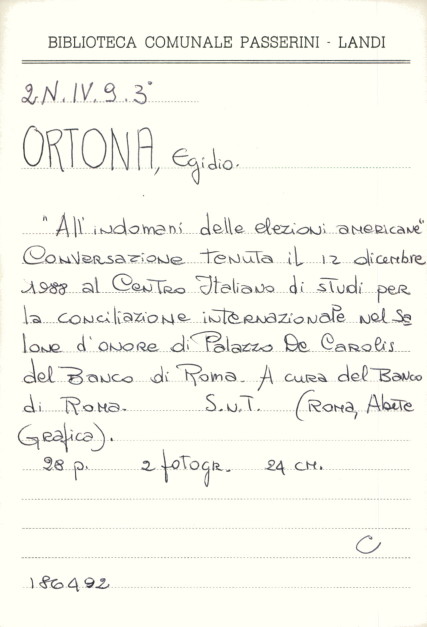 BIBLIOTECA COMUNALE PASSERINI - LANDI
2.N.IV.9.3°
ORTONA, Egidio.
"All'indomani delle elezioni americane"
Conversazione tenuta il 12 dicembre
1988 al Centro Italiano di studi per
la conciliazione internazionale nel Sa
lone d'onore di Palazzo De Carolis
del Banco di Roma. A cura del Banco
di Roma. S.n.T. (Roma, Abete
Grafica).
28 p. 2 fotogr. 24 cm.
C
186492